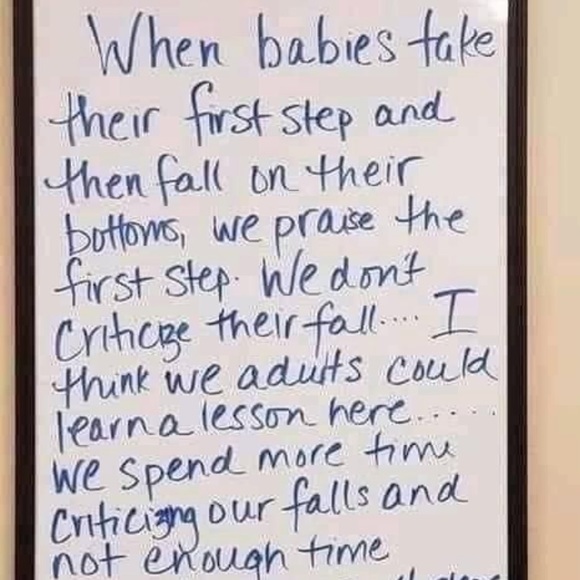 When babies take
their first step and
then fall on their
bottoms, we praise the
first step. We don't
criticize their fall.... I
think we adults could
learn a lesson here.....
we spend more time
criticizing our falls and
not enough time